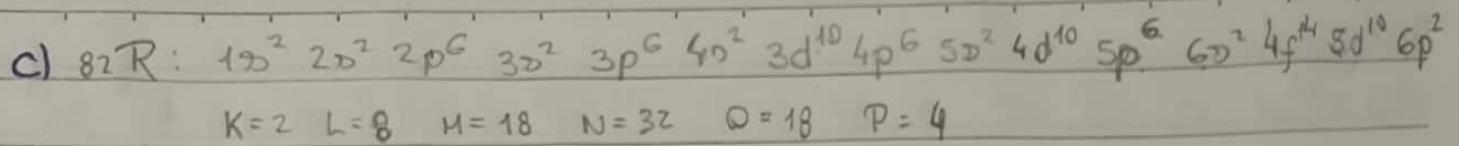 c) 82R: 1s² 2s² 2p⁶ 3s² 3p⁶ 4s² 3d¹⁰ 4p⁶ 5s² 4d¹⁰ 5p⁶ 6s² 4f¹⁴ 5d¹⁰ 6p²
K=2 L=8 M=18 N=32 O=18 P=4